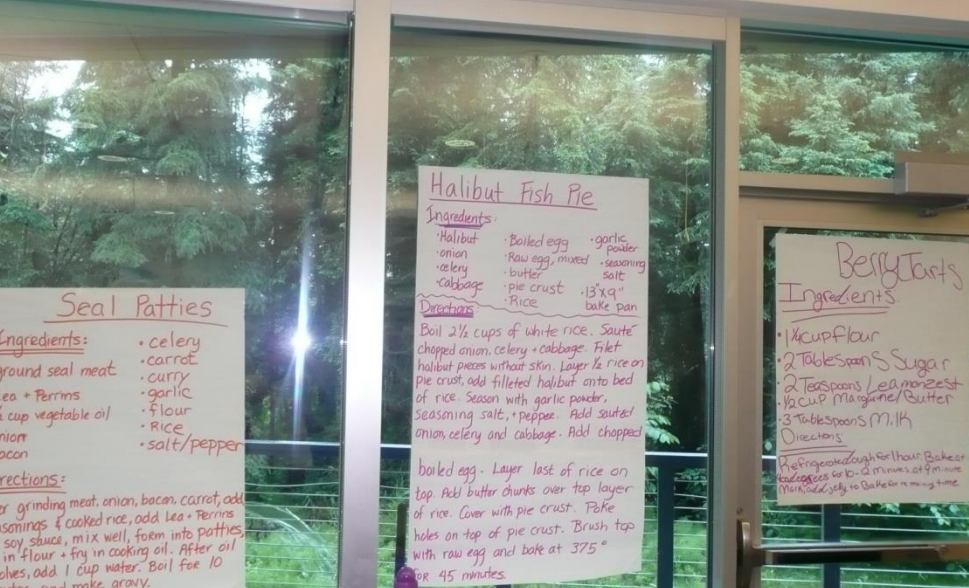 Seal Patties
Ingredients:
ground seal meat
Lea + Perrins
cup vegetable oil
onion
bacon
• celery
• carrot
• curry
• garlic
• flour
• Rice
• salt/pepper
Directions:
grinding meat, onion, bacon, carrot, add
& cooked rice, add Lea + Perrins
soy sauce, mix well, form into patties,
in flour + fry in cooking oil. After oil
add 1 cup water. Boil for 10
and make gravy.
Halibut Fish Pie
Ingredients:
• Halibut
• onion
• celery
• cabbage
• Boiled egg
• Raw egg, mixed
• butter
• pie crust
• Rice
• garlic powder
• seasoning salt
• 13"x9" bake pan
Directions
Boil 2½ cups of white rice. Sauté
chopped onion, celery + cabbage. Filet
halibut pieces without skin. Layer ½ rice on
pie crust, add filleted halibut onto bed
of rice. Season with garlic powder,
seasoning salt, + pepper. Add sauted
onion, celery and cabbage. Add chopped
boiled egg. Layer last of rice on
top. Add butter chunks over top layer
of rice. Cover with pie crust. Poke
holes on top of pie crust. Brush top
with raw egg and bake at 375°
for 45 minutes.
Berry Tarts
Ingredients
• 1¼ cup flour
• 2 Tablespoons Sugar
• 2 Teaspoons Leamonzest
• ½ cup Margarine/Butter
• 3 Tablespoons Milk
Directions
Refrigerate dough for 1 hour. Bake at
for 10-12 minutes at 9 minute
Mark, add jelly to Bake for remaining time